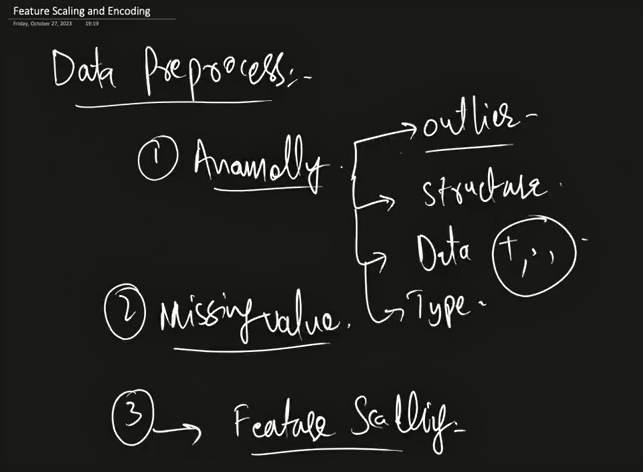 Feature Scaling and Encoding
Friday, October 27, 2023 19:19
Data Preprocess:-
① Anamolly.
→ outlier -
→ structure.
→ Data (+, ·,) -
→ Type.
② Missing value.
③ → Feature Scalling.-